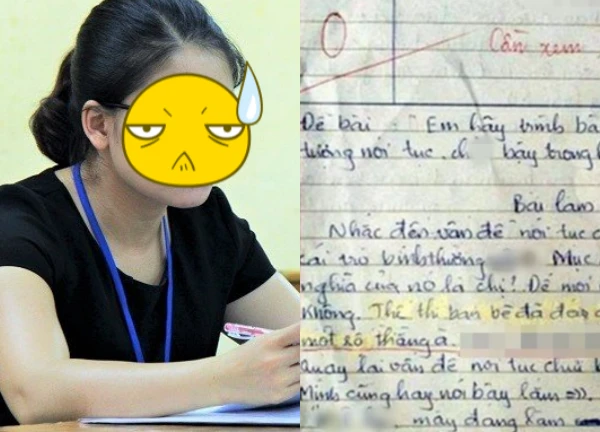 0
Cần xem
Đề bài : "Em hãy trình bà
tượng nói tục, ch bậy trong
Bài làm
Nhắc đến vấn đề nói tục c
cái trò bình thường Mục
nghĩa của nó là chi! Để mọi
không. Thế thì bạn bè đã đáp
một số thằng à.
Quay lại vấn đề nói tục chửi b
Mình cũng hay nói bậy lắm =)),
mày đang làm